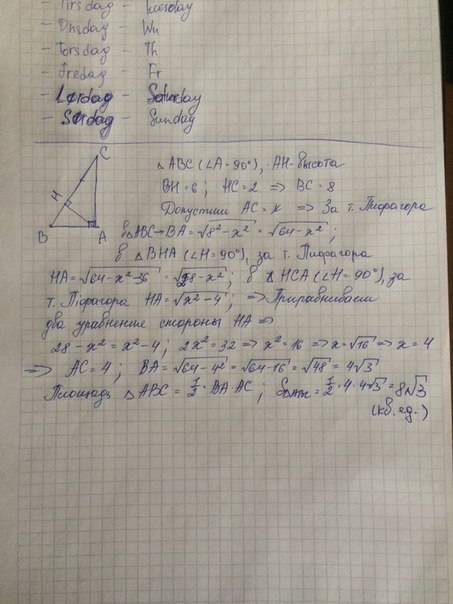 - Tirsdag - Tuesday
- Onsdag - Wn
- Torsdag - Th
- Fredag - Fr
- Lørdag - Saturday
- Søndag - Sunday
C
H
B
A
△ABC (∠A = 90°), AH - высота
BH = 6; HC = 2 => BC = 8
Допустим AC = x => За т. Пифагора
в △ABC BA = √8² - x² = √64 - x²;
в △BHA (∠H = 90°), за т. Пифагора
HA = √64 - x² - 36 = √28 - x²; в △HCA (∠H = 90°), за
т. Піфагора HA = √x² - 4; => Приравниваем
два уравнение стороны HA =>
28 - x² = x² - 4; 2x² = 32 => x² = 16 => x = √16 => x = 4
=> AC = 4; BA = √64 - 4² = √64 - 16 = √48 = 4√3
Площадь △ABC = 1/2 · BA · AC; = 1/2 · 4 · 4√3 = 8√3
(кв. ед.)